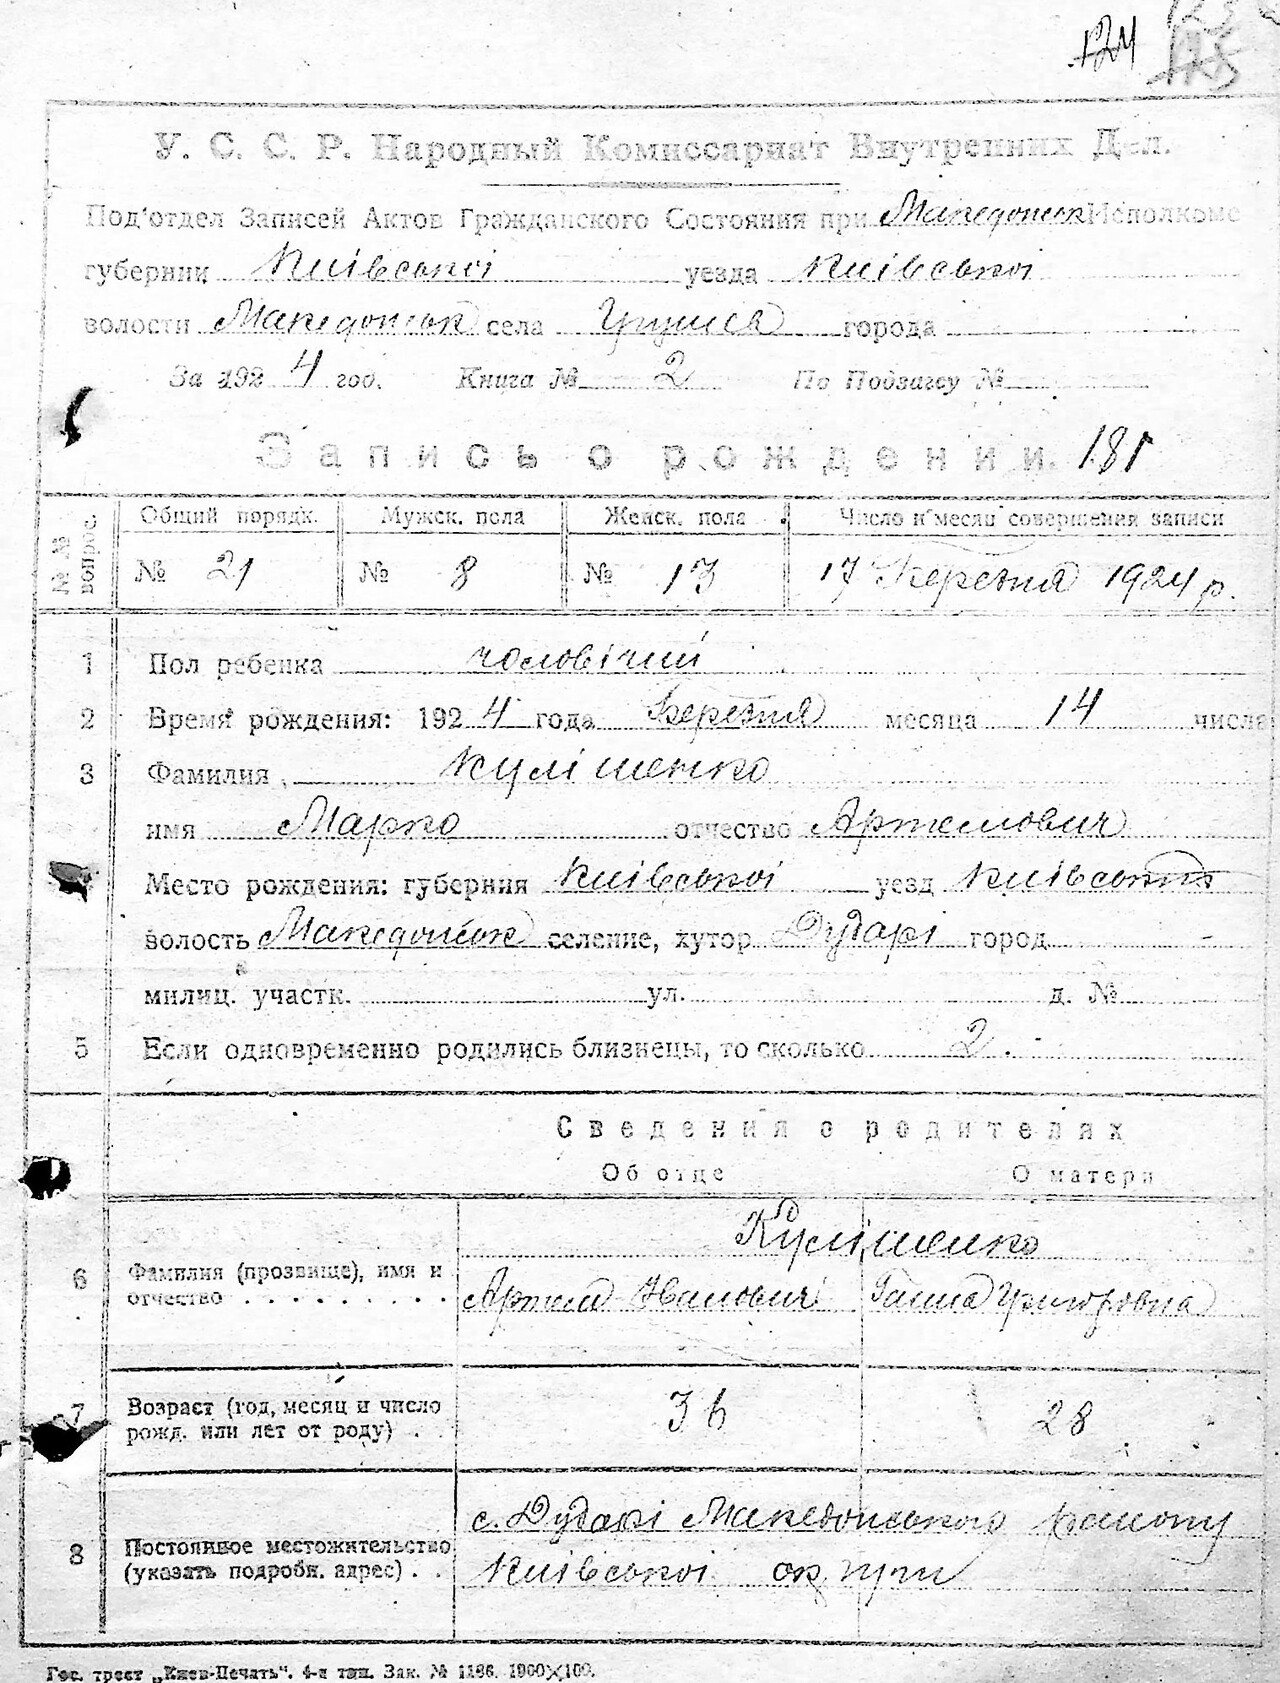 124
У. С. С. Р. Народный Комиссариат Внутренних Дел.
Под'отдел Записей Актов Гражданского Состояния при Македонськ Исполкоме
губернии Київської уезда Київської
волости Македонськ села города
За 1924 год. Книга № 2 По Подзагсу №
Запись о рождении. 181
№ № вопрос. Общий порядк. Мужск. пола Женск. пола Число и месяц совершения записи
№ 21 № 8 № 13 17 Березня 1924 р.
1 Пол ребенка чоловічий
2 Время рождения: 1924 года Березня месяца 14 числа
3 Фамилия Кулішенко
имя Марко отчество Артемович
Место рождения: губерния Київської уезд
волость Македонськ селение, хутор Дударі город -
милиц. участк. ул. д. №
5 Если одновременно родились близнецы, то сколько 2.
Сведения о родителях
Об отце О матери
Кулішенко
6 Фамилия (прозвище), имя и
отчество . . . . . . . . . Артем Иванович Ганна Григоровна
7 Возраст (год, месяц и число
рожд. или лет от роду) . . 36 28
с. Дударі Македонського району
8 Постоянное местожительство
(указать подробн. адрес) . . Київської округи
Гос. трест „Киев-Печать“. 4-я тип. Зак. № 1186. 1000×100.